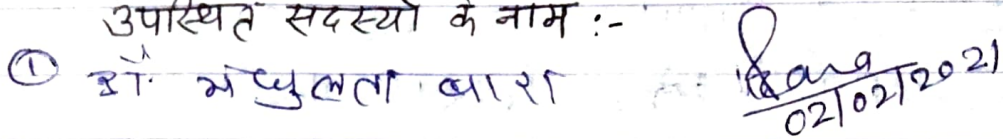 उपस्थित सदस्यों के नाम :-
① डॉ. मधुलता बारा
02/02/2021